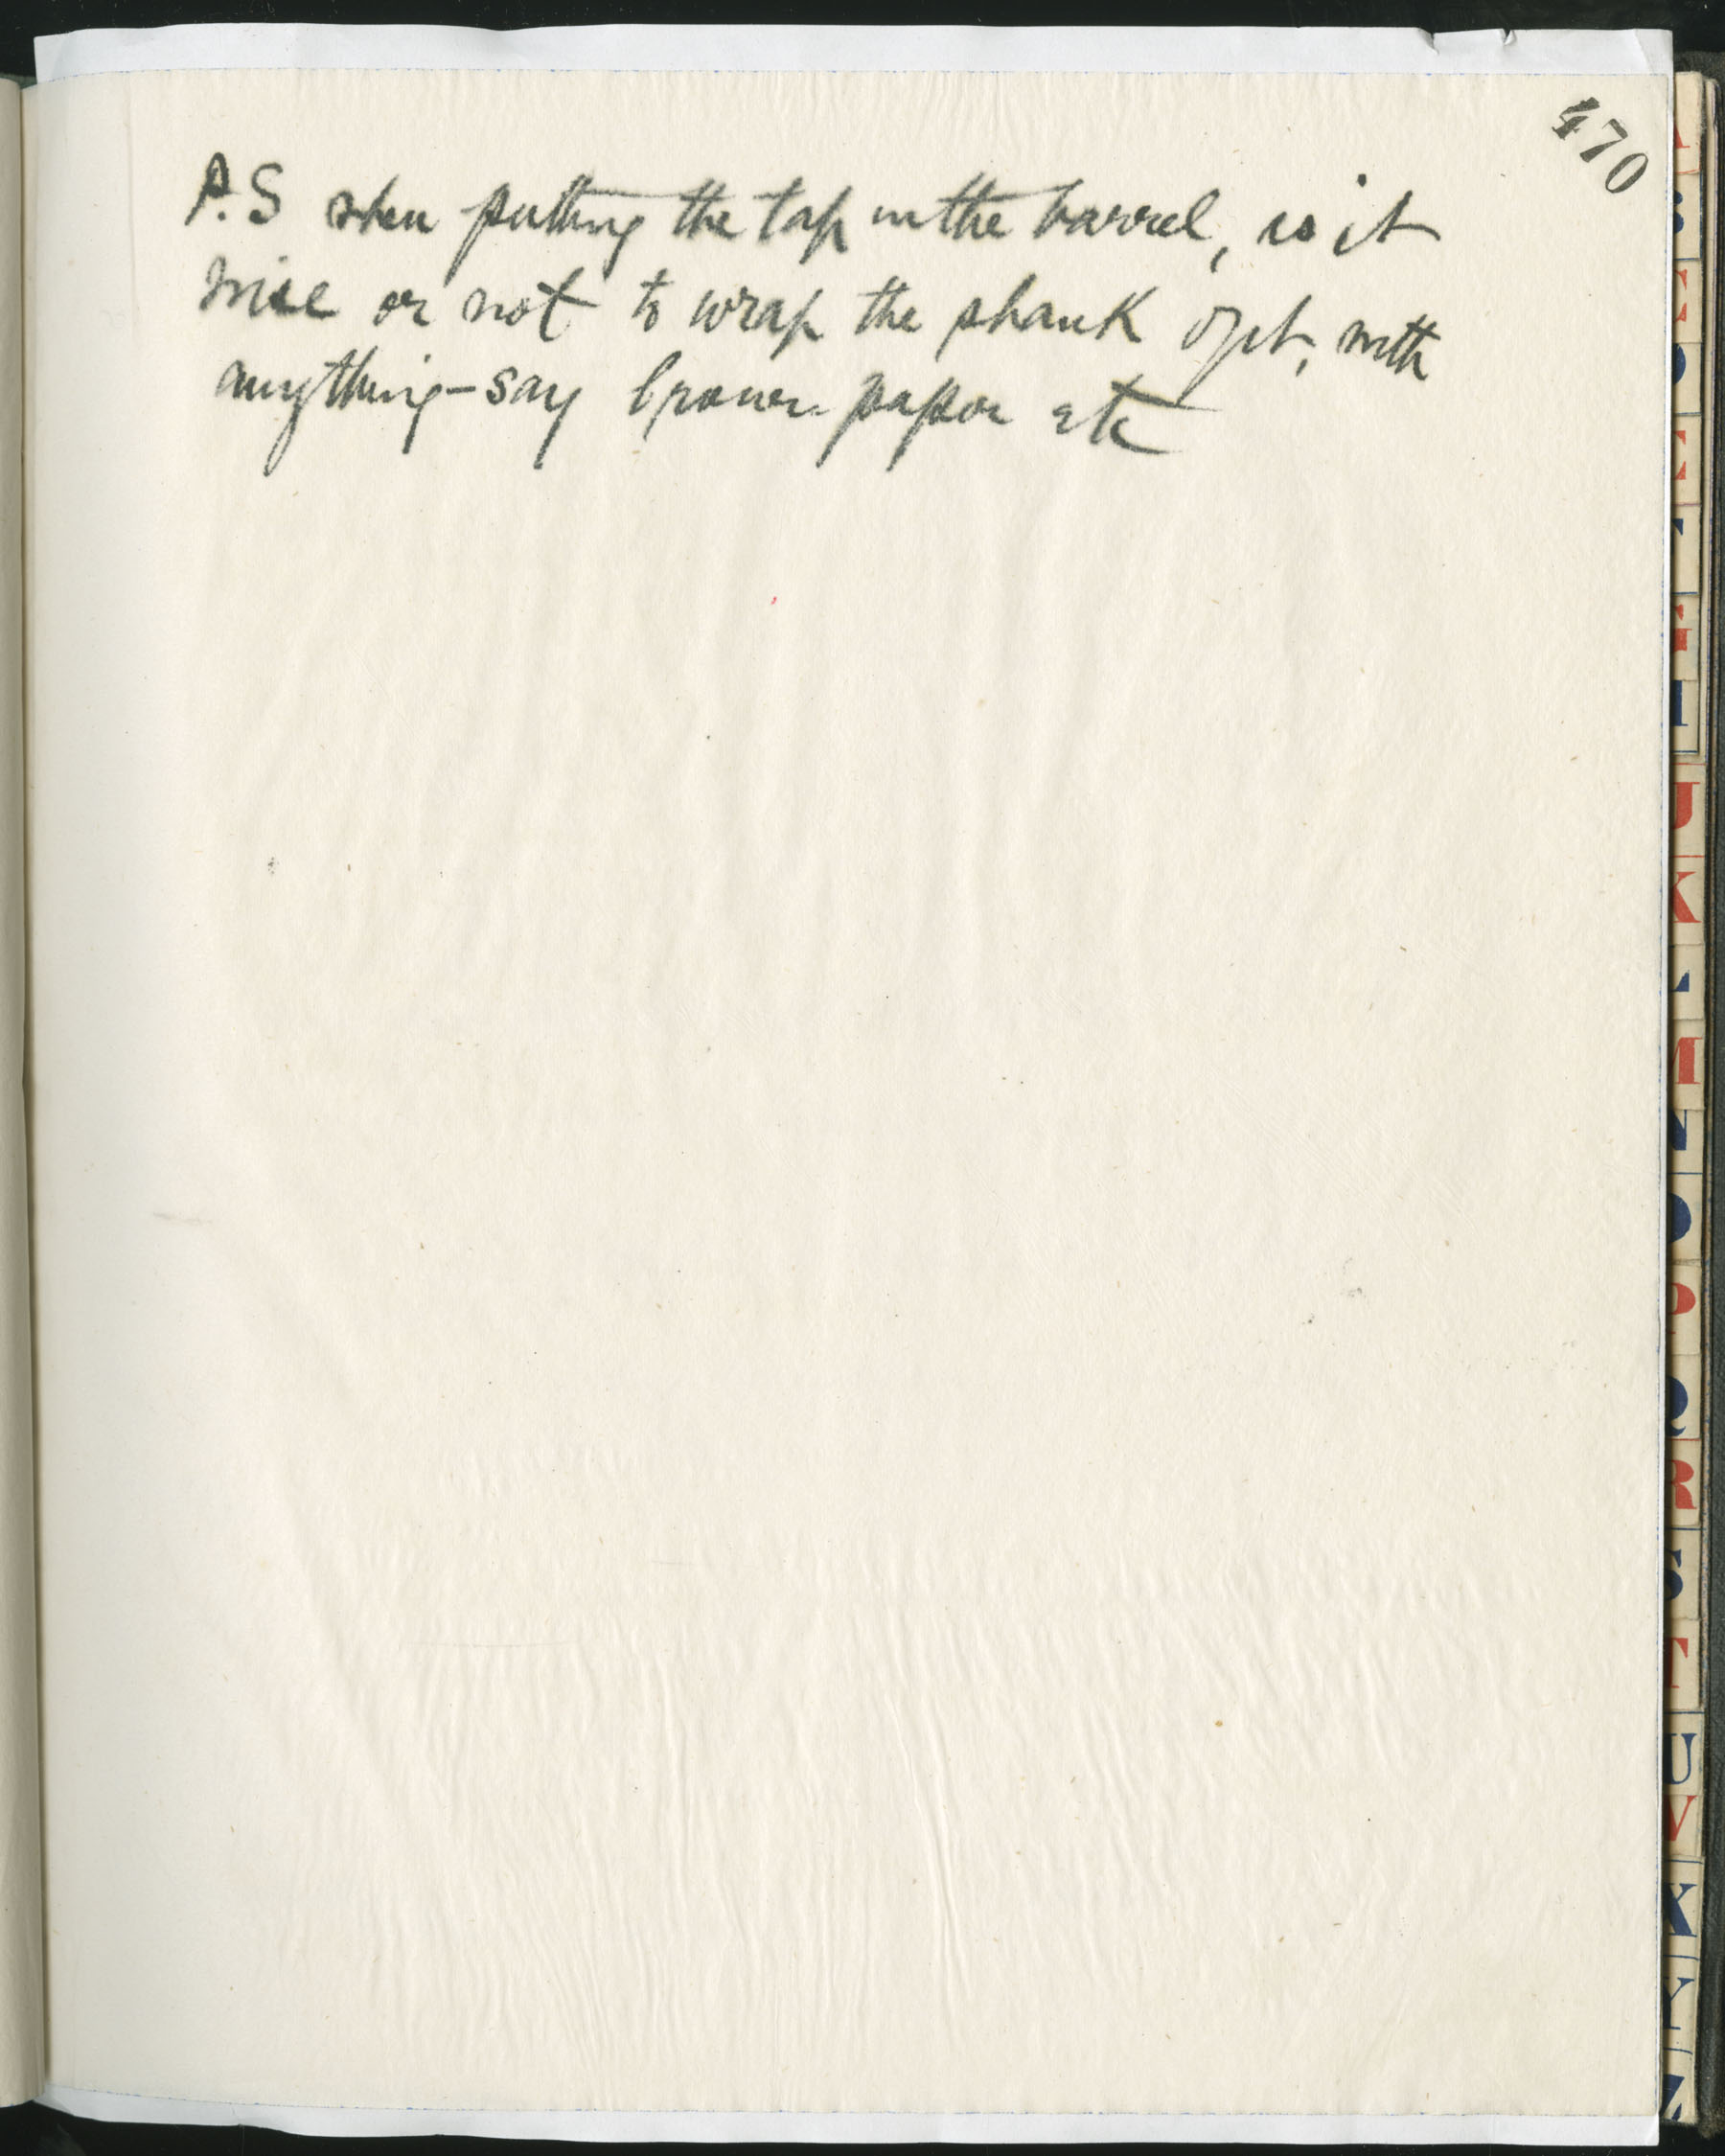 470
P.S when putting the tap in the barrel, is it
wise or not to wrap the shank of it, with
anything - say brown paper etc
A
B
C
D
E
F
G
H
J
K
L
M
N
O
P
Q
R
S
T
U
V
X
Y
Z